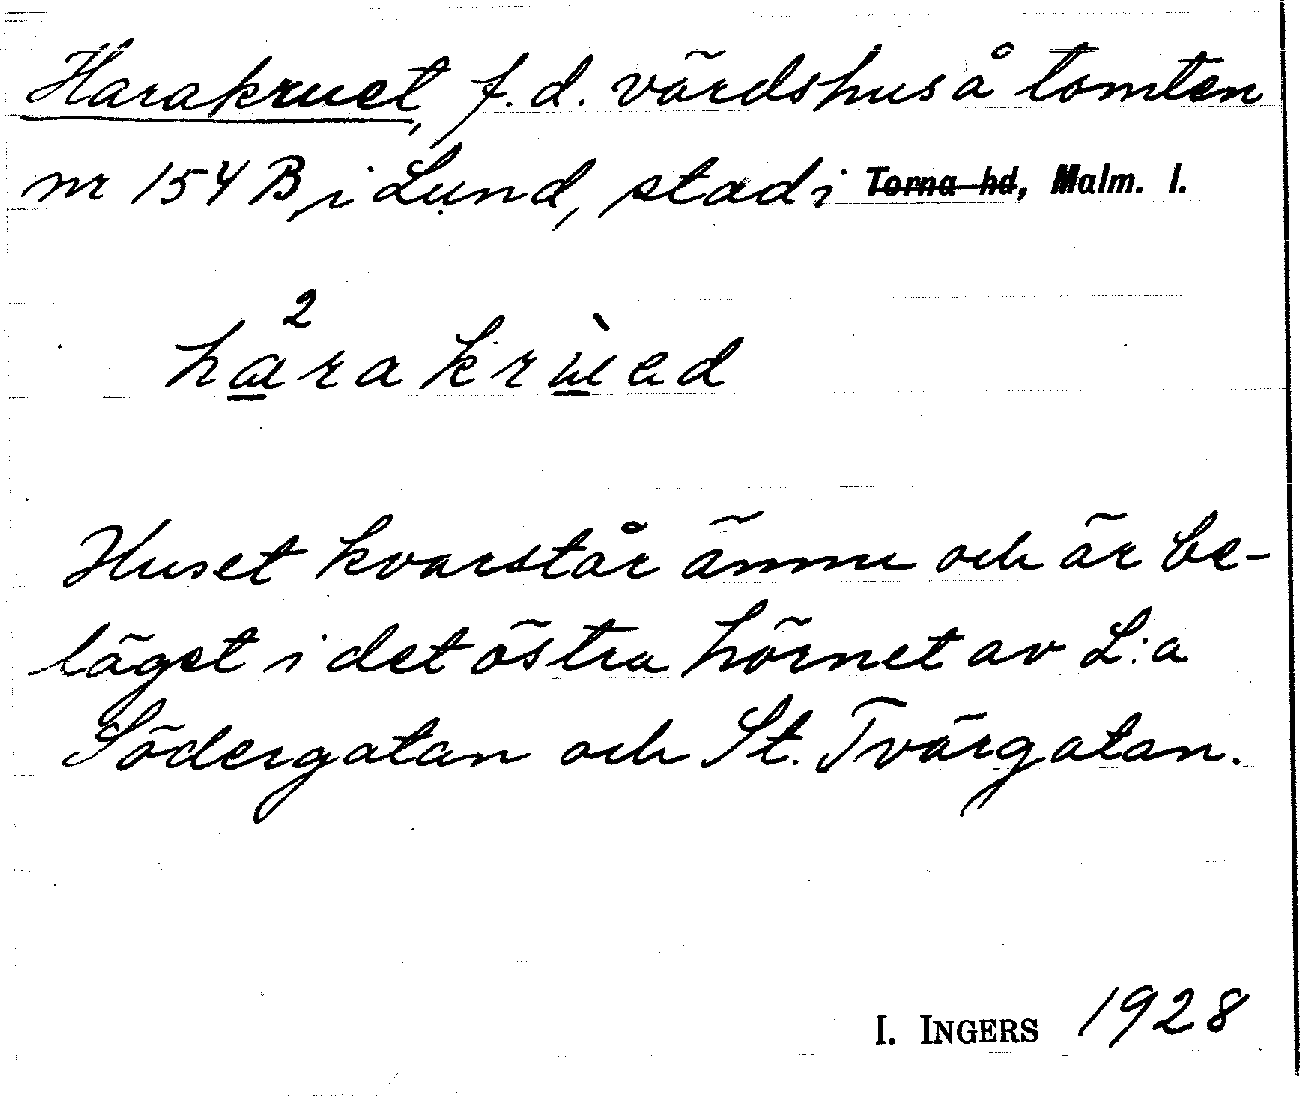 Harakruet, f.d. värdshus å tomten
nr 154 B, i Lund, stad i Torna hd, Malm. l.
2
harakrùed
Huset kvarstår ännu och är be-
läget i det östra hörnet av L:a
Södergatan och St. Tvärgatan.
I. INGERS 1928